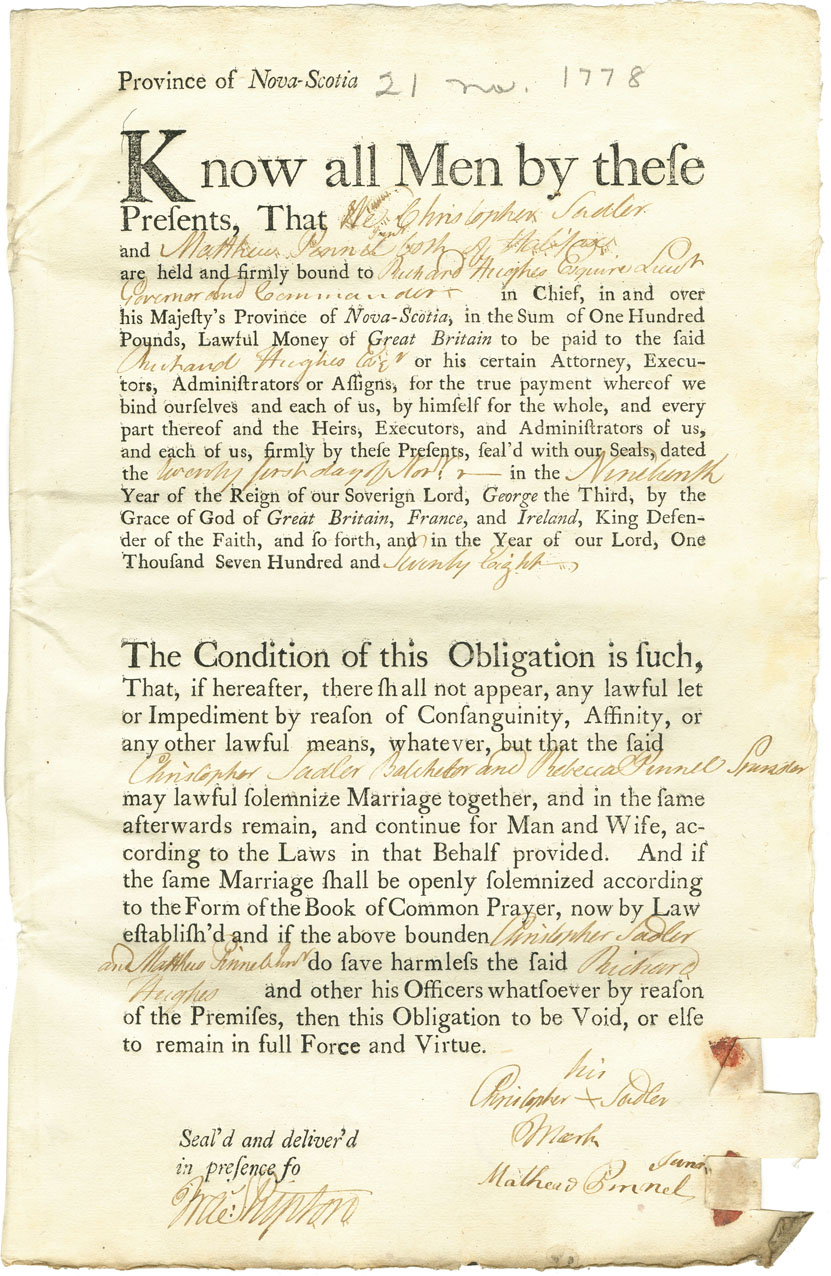 Province of Nova-Scotia 21 no. 1778
Know all Men by theſe
Preſents, That We Christopher Sadler
and Matthew Pennel Junr both of Halifax
are held and firmly bound to Richard Hughes Esquire Lieut
Governor and Commander in Chief, in and over
his Majeſty's Province of Nova-Scotia, in the Sum of One Hundred
Pounds, Lawful Money of Great Britain to be paid to the ſaid
Richard Hughes Esqr or his certain Attorney, Execu-
tors, Adminiſtrators or Aſſigns, for the true payment whereof we
bind ourſelves and each of us, by himſelf for the whole, and every
part thereof and the Heirs, Executors, and Adminiſtrators of us,
and each of us, firmly by theſe Preſents, ſeal'd with our Seals, dated
the twenty first day of Novr in the Nineteenth
Year of the Reign of our Soverign Lord, George the Third, by the
Grace of God of Great Britain, France, and Ireland, King Defen-
der of the Faith, and ſo forth, and in the Year of our Lord, One
Thouſand Seven Hundred and Seventy Eight
The Condition of this Obligation is ſuch,
That, if hereafter, there ſhall not appear, any lawful let
or Impediment by reaſon of Conſanguinity, Affinity, or
any other lawful means, whatever, but that the ſaid
Christopher Sadler Batchelor and Rebecca Pinnel Spinster
may lawful ſolemnize Marriage together, and in the ſame
afterwards remain, and continue for Man and Wife, ac-
cording to the Laws in that Behalf provided. And if
the ſame Marriage ſhall be openly ſolemnized according
to the Form of the Book of Common Prayer, now by Law
eſtabliſh'd and if the above bounden Christopher Sadler
and Matthew Pinnel Junr do ſave harmleſs the ſaid Richard
Hughes and other his Officers whatſoever by reaſon
of the Premiſes, then this Obligation to be Void, or elſe
to remain in full Force and Virtue.
his
Christopher + Sadler
Mark
Seal'd and deliver'd
in preſence fo
Mathead Pinnel Junr